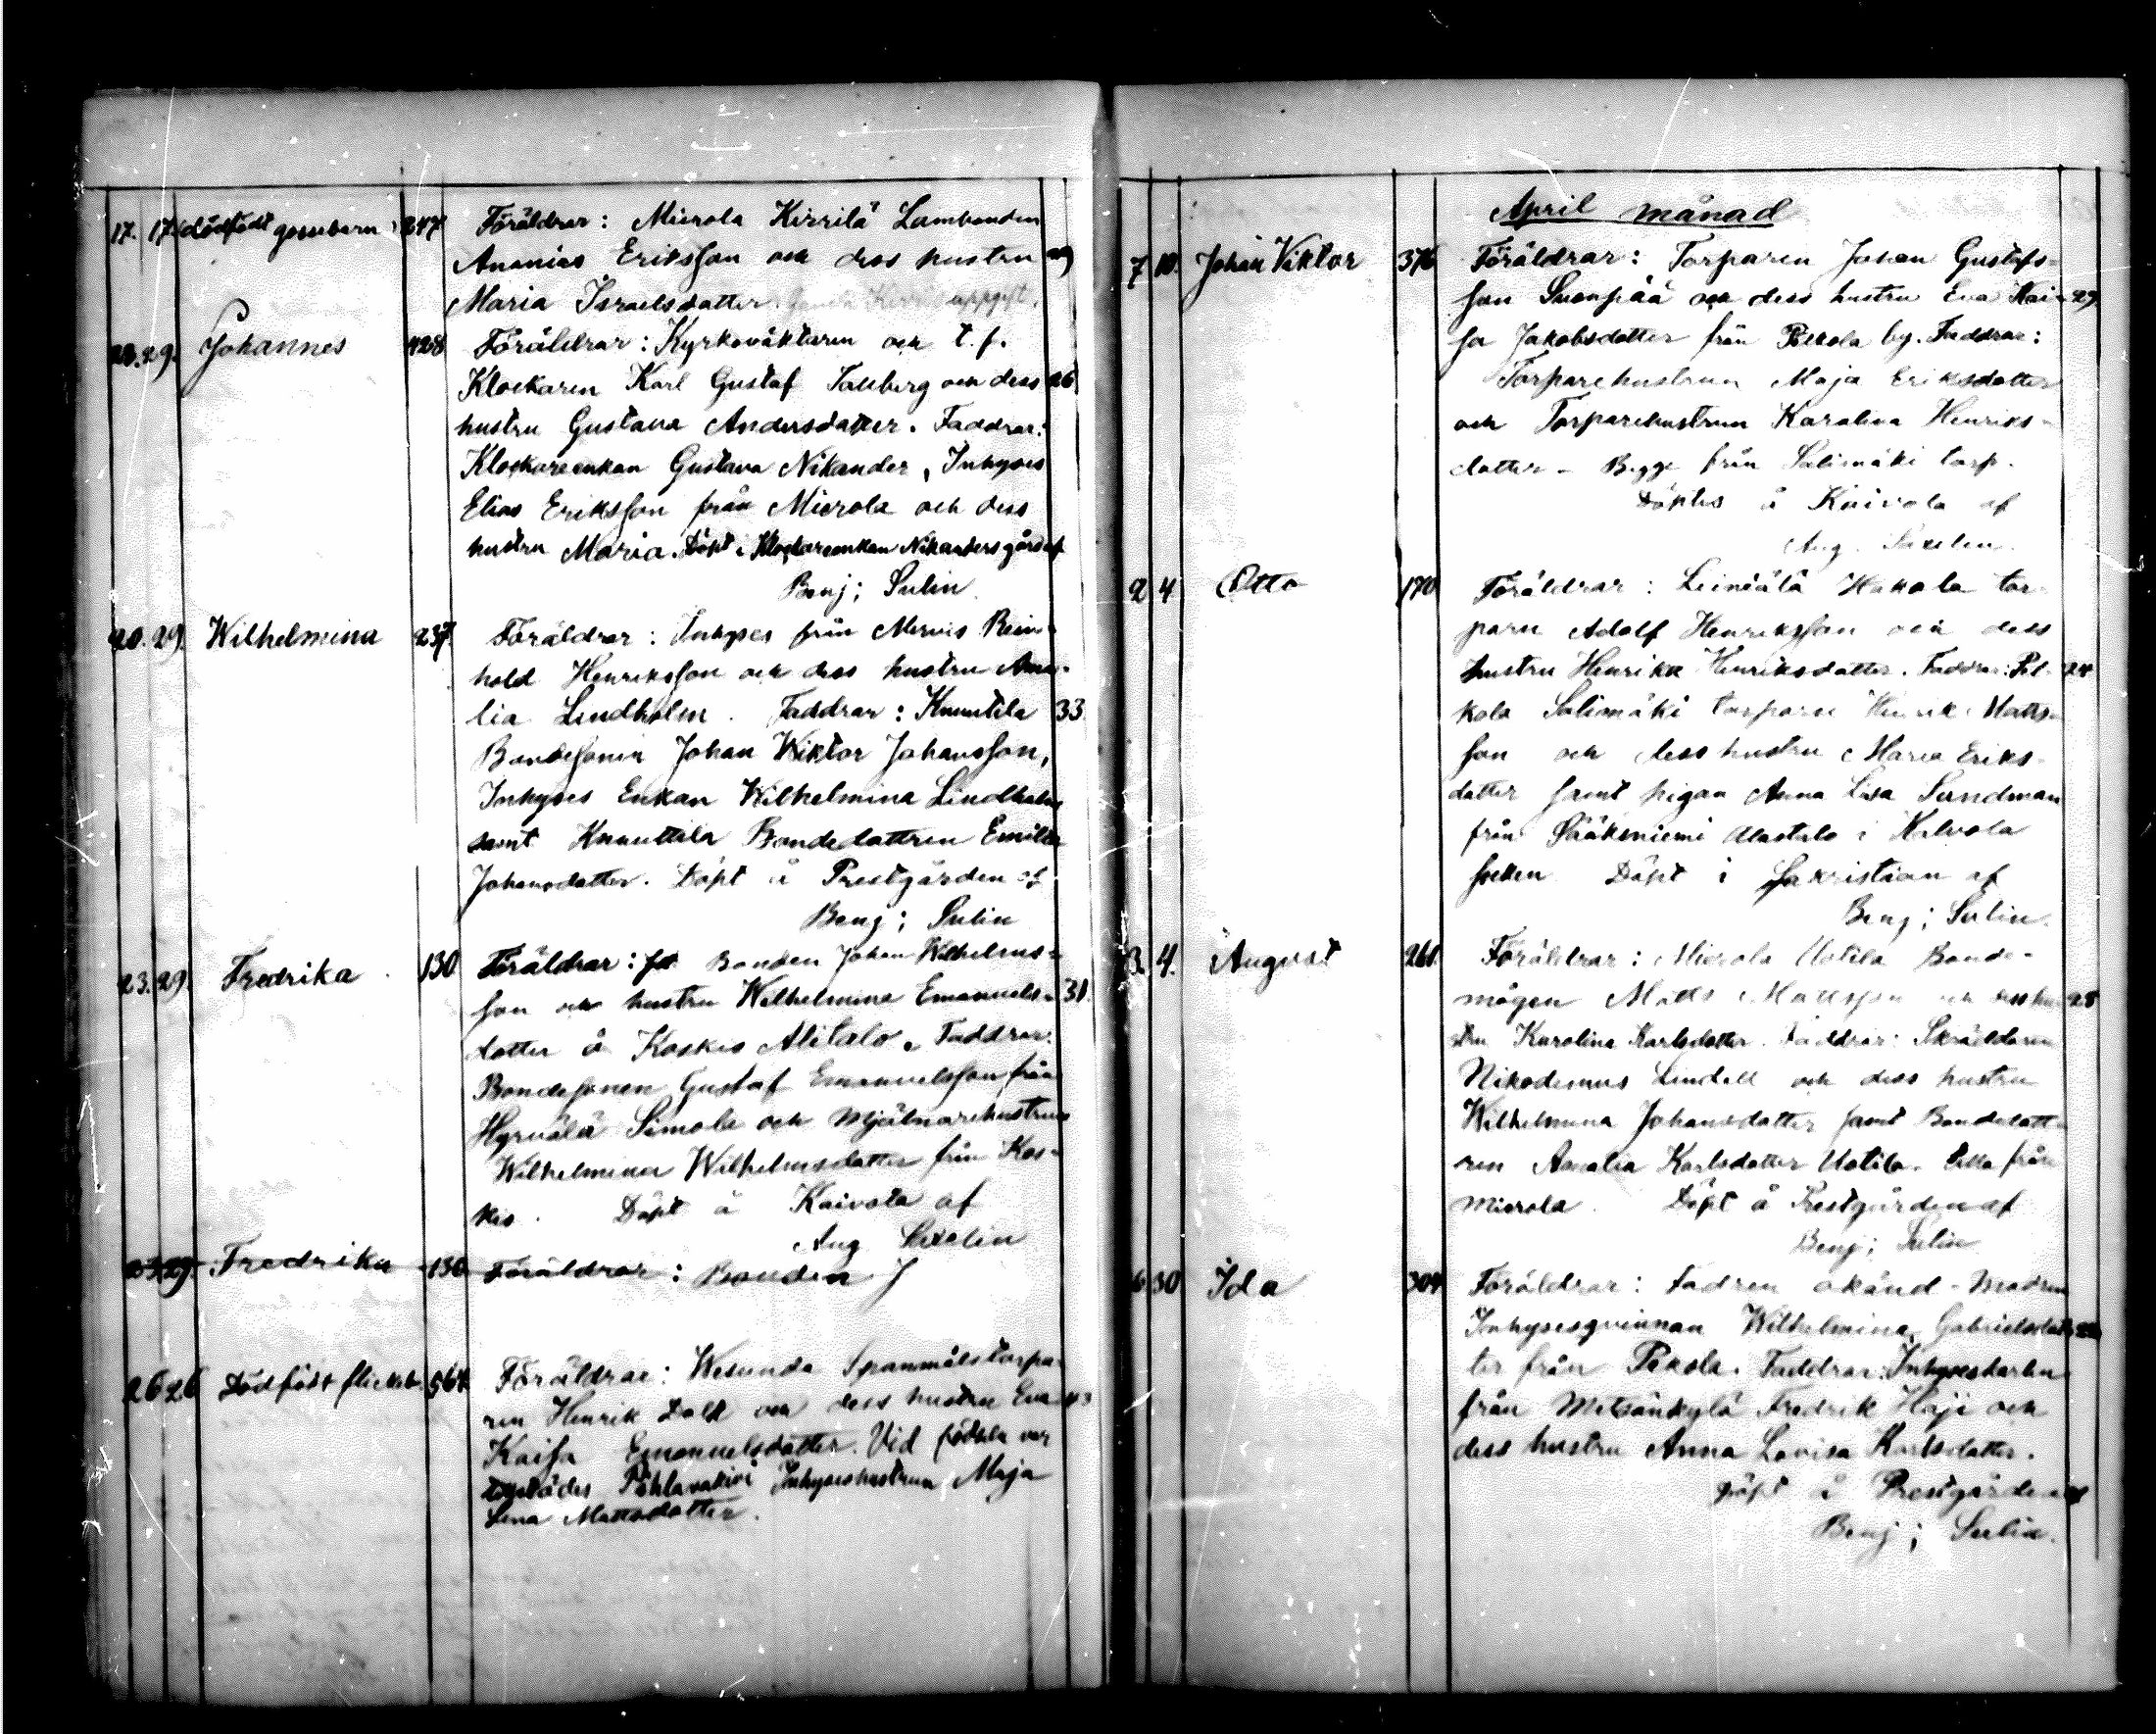 17. 17. dödfödt gossebarn 247 Föräldrar: Mierola Kirrilä Lambonden
Ananias Eriksson och dess hustru 29
Maria Israelsdatter. uppgift.
29. Johannes 428 Föräldrar: Kyrkovaktaren och t.f.
Klockaren Karl Gustaf Tallberg och dess 26
hustru Gustava Andersdatter. Faddrar:
Klockareenkan Gustava Nikander, Inhyses
Elias Eriksson från Mierola och dess
hustru Maria. Döpt i Klockareenkan Nikanders gård af
Benj; Sulin
20. 29. Wilhelmina 237. Föräldrar: Inhyses från Mervis Rein-
hold Henriksson och dess hustru Ama-
lia Lindholm. Faddrar: Knuutila 33.
Bondesonen Johan Wiktor Johansson,
Inhyses Enkan Wilhelmina Lindholm
samt Knuuttila Bondedattren Emilia
Johansdatter. Döpt å Prestgården af
Benj; Sulin
23. 29. Fredrika 130 Föräldrar: Bonden Johan Wilhelms-
son och hustru Wilhelmina Emanuels- 31.
datter å Koskis Alitalo. Faddrar:
Bondesonen Gustaf Emanuelsson från
Hyrvälä Simola och Mjölnarehustrun
Wilhelmina Wilhelmsdatter från Kos-
kis. Döpt å Kaivola af
Aug Saxelin
23. 29. Fredrika 130 Föräldrar: Bonden J
26 26 Dödfödt flickeb. 567 Föräldrar: Wesunda Spanmålstorpa-
ren Henrik Dolk och dess hustru Eva 43
Kaisa Emanuelsdatter. Vid födsla var
tillstädes Inhyseshustrun Maja
Lena Mattsdatter.
April månad
7. 10. Johan Viktor 376 Föräldrar: Torparen Johan Gustafs-
son Suonpää och dess hustru Eva Kai- 29
sa Jakobsdatter från Pekola by. Faddrar:
Torparehustrun Maja Eriksdatter
och Torparehustrun Karolina Henriks-
datter - Begge från Salimäki torp.
Döptes å Kaivola af
Aug. Saxelin.
2 4 Otto 170 Föräldrar: Leiniälä Hakala tor-
paren Adolf Henriksson och dess
hustru Henrika Henriksdatter. Faddrar: Pe- 24
kola Salimäki torpare Henrik Matts-
son och dess hustru Maria Eriks-
datter samt pigan Anna Lisa Sundman
från Sääksniemi Alastalo i Kalvola
socken Döpt i Sakristian af
Benj; Sulin.
3. 4. August 261. Föräldrar: Mierola Uotila Bonde-
mågen Matts Mattsson och dess hu- 28
stru Karolina Karlsdatter. Faddrar: Skräddaren
Nikodemus Lindell och dess hustru
Wilhelmina Johansdatter samt Bondedatt-
ren Amalia Karlsdatter Uotila. från
Mierola. Döpt å Prestgården af
Benj; Sulin
6 30 Ida 304 Föräldrar: Fadren okänd - Modren
Inhysesqvinnan Wilhelmina Gabrielsdat-
ter från Pekola. Faddrar: Inhyseskarlen
från Metsänkylä Fredrik Häje och
dess hustru Anna Lovisa Karlsdatter.
Döpt å Prestgården af
Benj; Sulin.